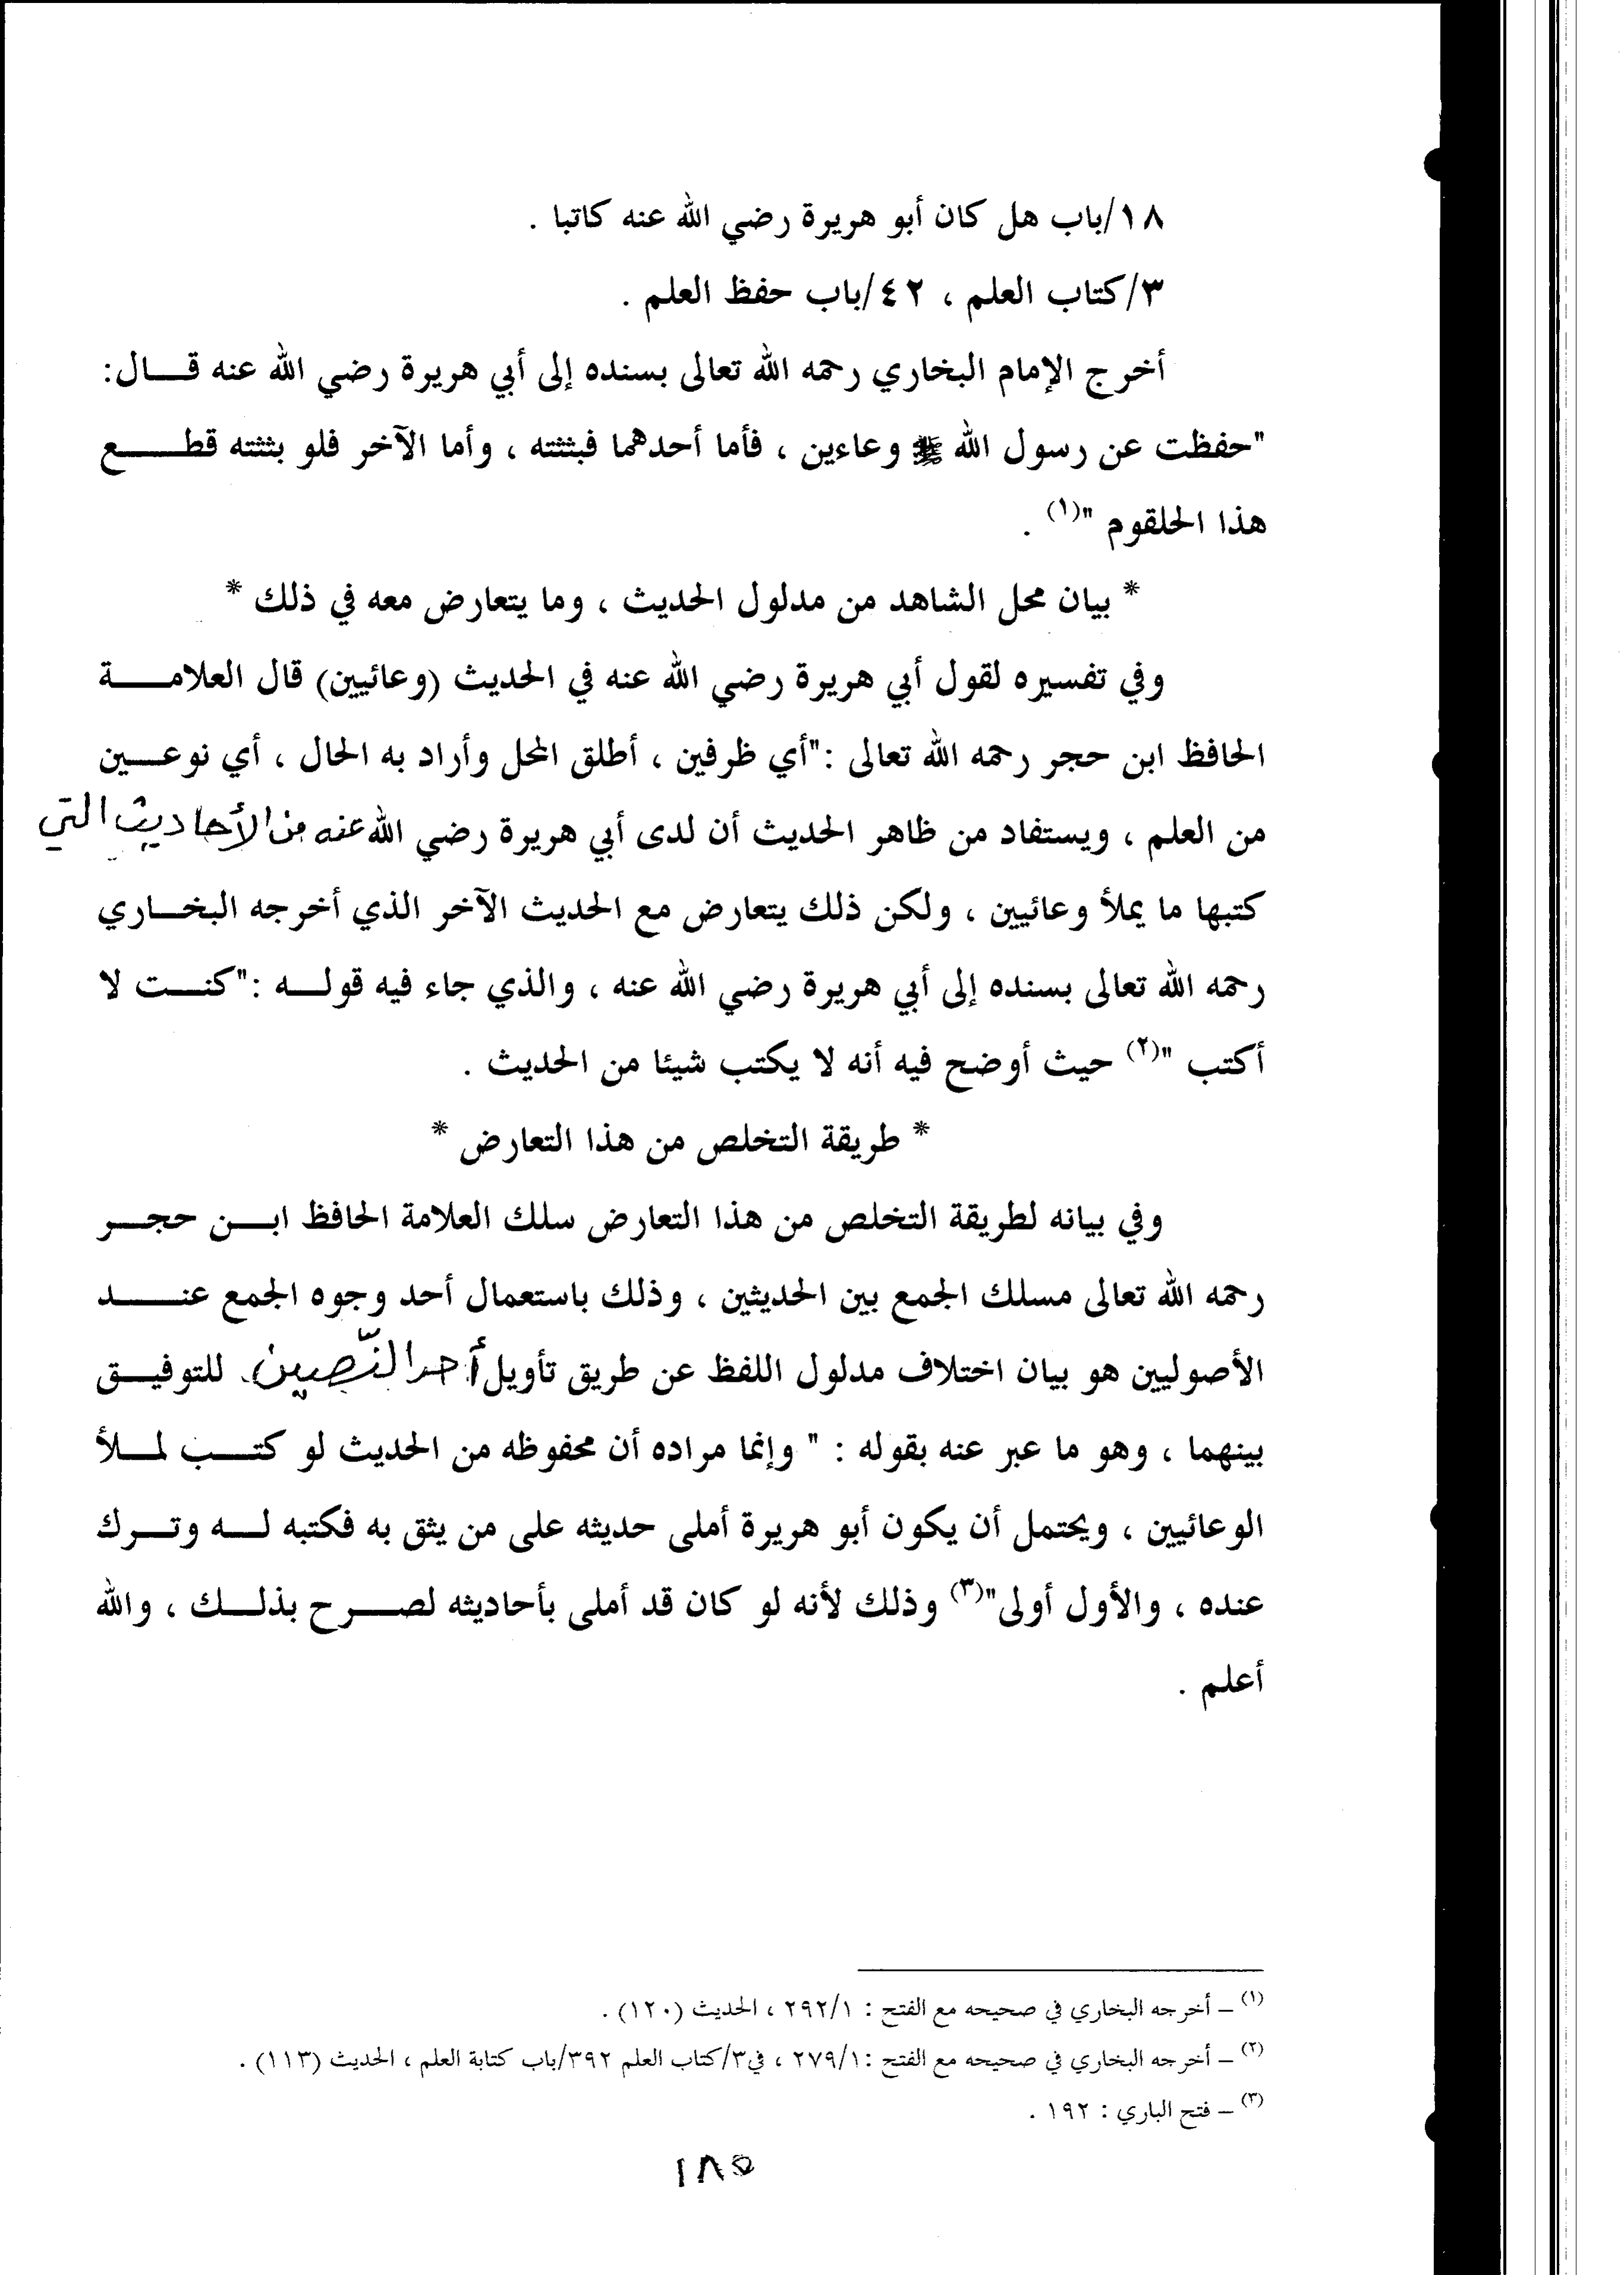 ١٨/باب هل كان أبو هريرة رضي الله عنه كاتبا .
٣/كتاب العلم ، ٤٢/باب حفظ العلم .
أخرج الإمام البخاري رحمه الله تعالى بسنده إلى أبي هريرة رضي الله عنه قـــال:
"حفظت عن رسول الله ﷺ وعاءين ، فأما أحدهما فبثثته ، وأما الآخر فلو بثثته قطـــــع
هذا الحلقوم "(١) .
* بيان محل الشاهد من مدلول الحديث ، وما يتعارض معه في ذلك *
وفي تفسيره لقول أبي هريرة رضي الله عنه في الحديث (وعائيين) قال العلامـــــة
الحافظ ابن حجر رحمه الله تعالى :"أي ظرفين ، أطلق المحل وأراد به الحال ، أي نوعـــين
من العلم ، ويستفاد من ظاهر الحديث أن لدى أبي هريرة رضي الله عنه من الأحاديث التي
كتبها ما يملأ وعائيين ، ولكن ذلك يتعارض مع الحديث الآخر الذي أخرجه البخــاري
رحمه الله تعالى بسنده إلى أبي هريرة رضي الله عنه ، والذي جاء فيه قولـــه :"كنـــت لا
أكتب "(٢) حيث أوضح فيه أنه لا يكتب شيئا من الحديث .
* طريقة التخلص من هذا التعارض *
وفي بيانه لطريقة التخلص من هذا التعارض سلك العلامة الحافظ ابـــن حجـــر
رحمه الله تعالى مسلك الجمع بين الحديثين ، وذلك باستعمال أحد وجوه الجمع عنـــــد
الأصوليين هو بيان اختلاف مدلول اللفظ عن طريق تأويل أحد النّصين للتوفيـــق
بينهما ، وهو ما عبر عنه بقوله : " وإنما مراده أن محفوظه من الحديث لو كتـــب لمـــلأ
الوعائيين ، ويحتمل أن يكون أبو هريرة أملى حديثه على من يثق به فكتبه لـــه وتـــرك
عنده ، والأول أولى"(٣) وذلك لأنه لو كان قد أملى بأحاديثه لصـــرح بذلـــك ، والله
أعلم .
(١) – أخرجه البخاري في صحيحه مع الفتح : ٢٩٢/١ ، الحديث (١٢٠) .
(٢) – أخرجه البخاري في صحيحه مع الفتح :٢٧٩/١ ، في٣/كتاب العلم ٣٩٢/باب كتابة العلم ، الحديث (١١٣) .
(٣) – فتح الباري : ١٩٢ .
١٨٥